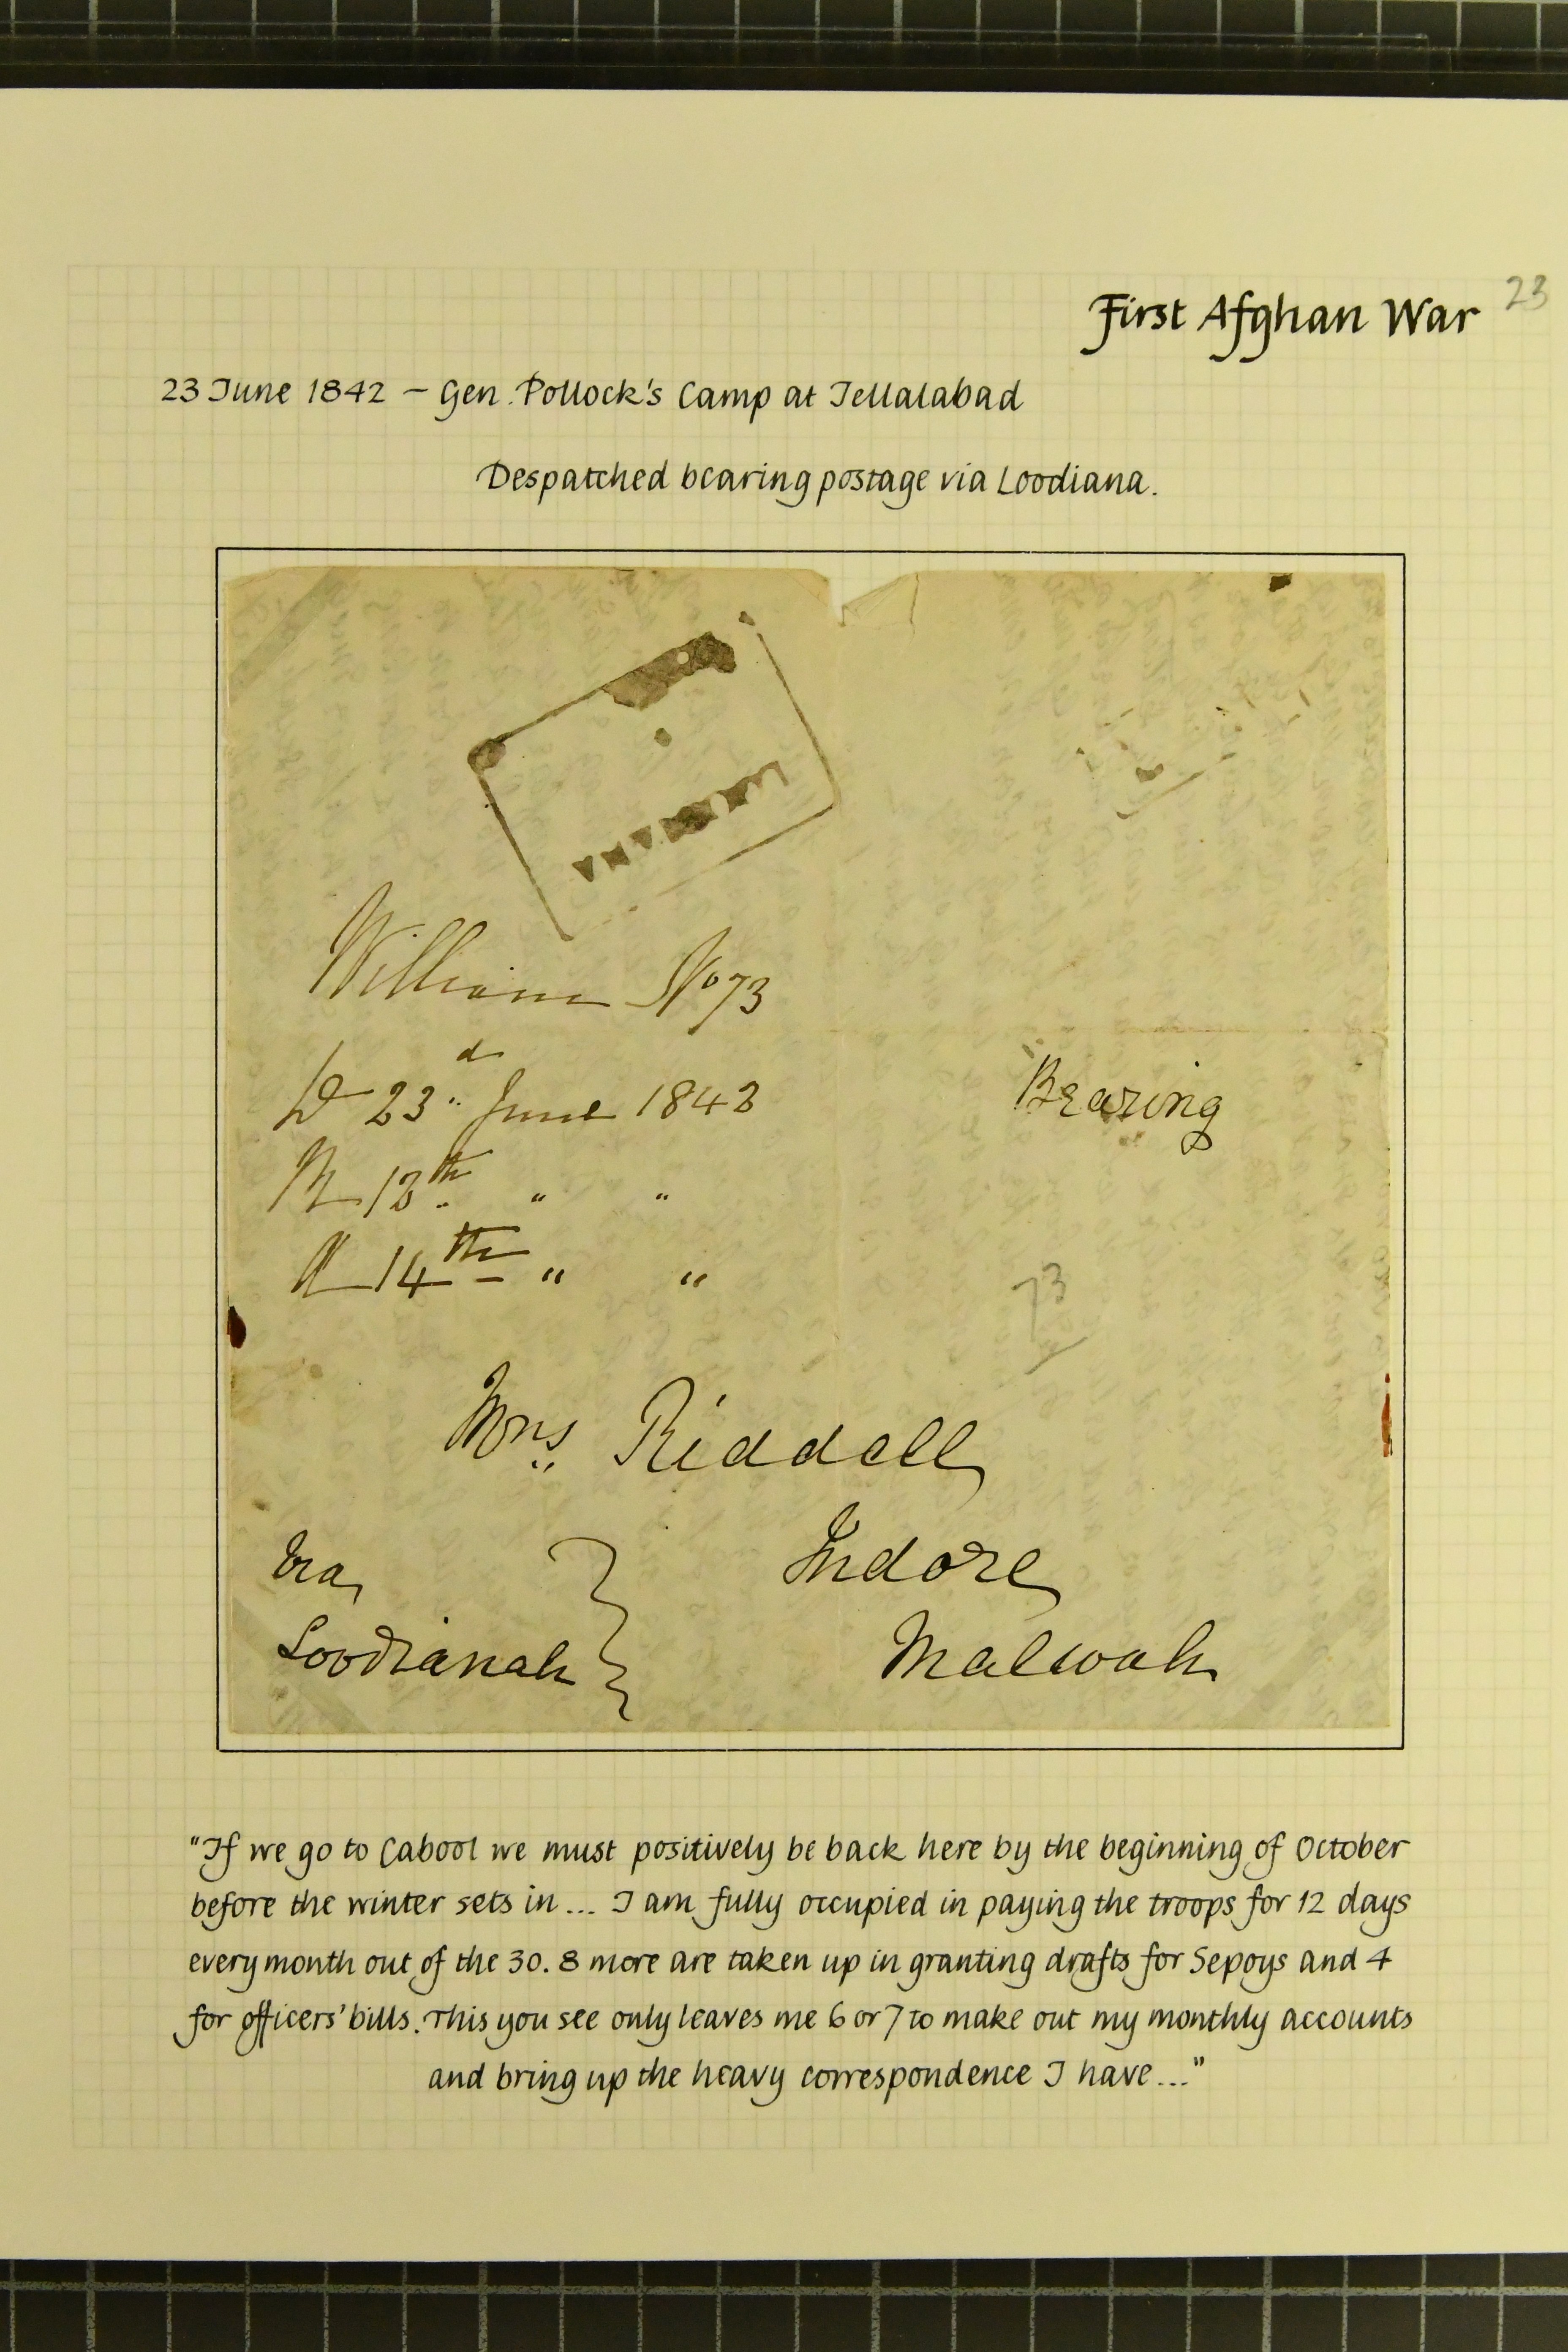 First Afghan War 23
23 June 1842 – Gen. Pollock's Camp at Jellalabad
Despatched bearing postage via Loodiana.
William No 73
D 23d June 1842
Bearing
13th " "
14th " "
73
Mrs Riddell
Via
Indore
Loodianah
Malwah
"If we go to Cabool we must positively be back here by the beginning of October
before the winter sets in... I am fully occupied in paying the troops for 12 days
every month out of the 30. 8 more are taken up in granting drafts for Sepoys and 4
for officers' bills. This you see only leaves me 6 or 7 to make out my monthly accounts
and bring up the heavy correspondence I have..."